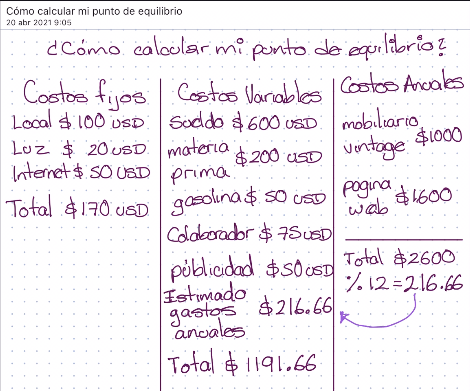 Cómo calcular mi punto de equilibrio
20 abr 2021 9:05
¿Cómo calcular mi punto de equilibrio?
Costos fijos
Local $ 100 USD
Luz $ 20 USD
Internet $ 50 USD
Total $170 USD
Costos Variables
Sueldo $600 USD
materia
prima $200 USD
gasolina $ 50 USD
Colaborador $ 75 USD
públicidad $50 USD
Estimado
gastos $216.66
anuales
Total $ 1191.66
Costos Anuales
mobiliario
vintage $1000
pagina
web $1600
Total $2600
% 12 = 216.66